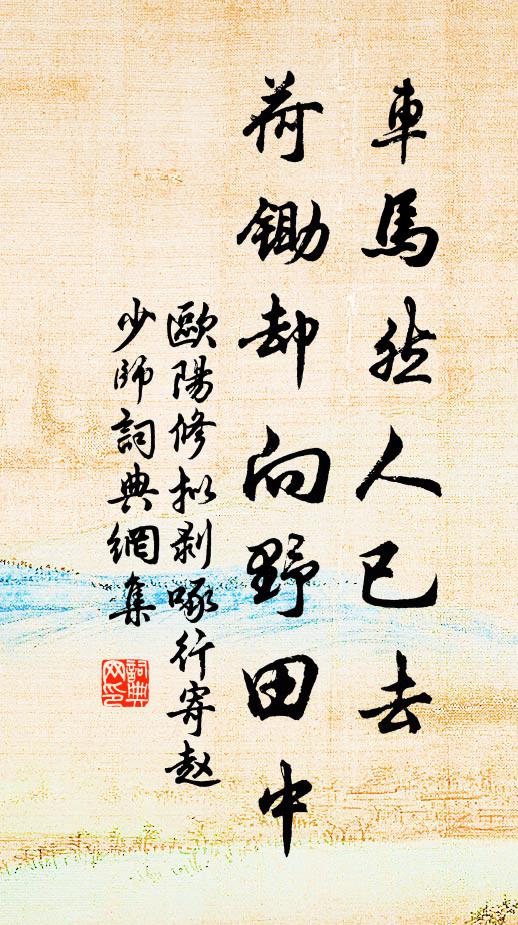 車馬然人已去
荷鋤却向野田中
歐陽修拟剥啄行寄赵
少師詞典網集
詞典网印